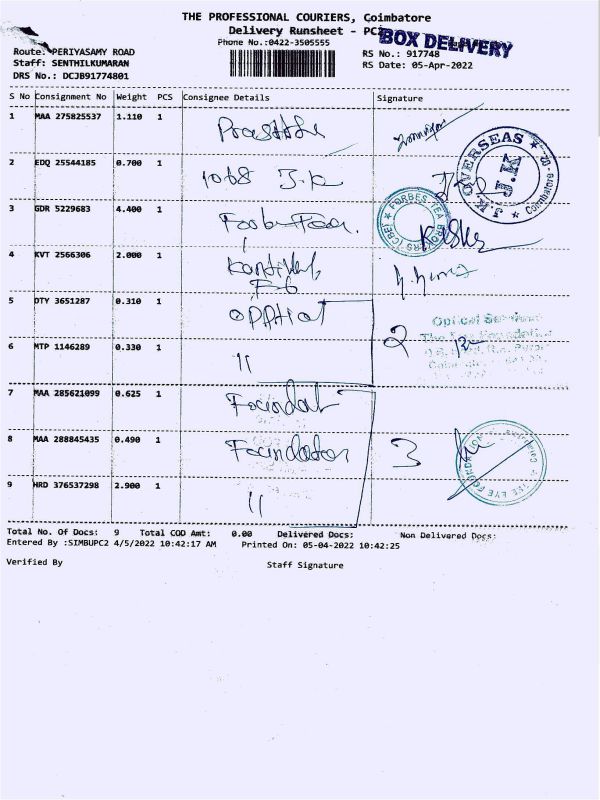 THE PROFESSIONAL COURIERS, Coimbatore
Delivery Runsheet - PC2
BOX DELIVERY
Phone No.:0422-3505555
Route: PERIYASAMY ROAD
RS No.: 917748
Staff: SENTHILKUMARAN
RS Date: 05-Apr-2022
DRS No.: DCJB91774801
S No Consignment No Weight PCS Consignee Details Signature
1 MAA 275825537 1.110 1
2 EDQ 25544185 0.700 1 1068 J.K
J.K. OVERSEAS J.K Coimbatore - 02
3 GDR 5229683 4.400 1
FORBES TEA BROKERS (CBE)
4 KVT 2566306 2.000 1
5 DTY 3651287 0.310 1 OPPtical
2 Optical Services
The Eye Foundation
6 MTP 1146289 0.330 1 11
7 MAA 285621099 0.625 1 Foundat
8 MAA 288845435 0.490 1 Foundation 3
THE EYE FOUNDATION
9 HRD 376537298 2.900 1 11
Total No. Of Docs: 9 Total COD Amt: 0.00 Delivered Docs: Non Delivered Docs:
Entered By :SIMBUPC2 4/5/2022 10:42:17 AM Printed On: 05-04-2022 10:42:25
Verified By Staff Signature